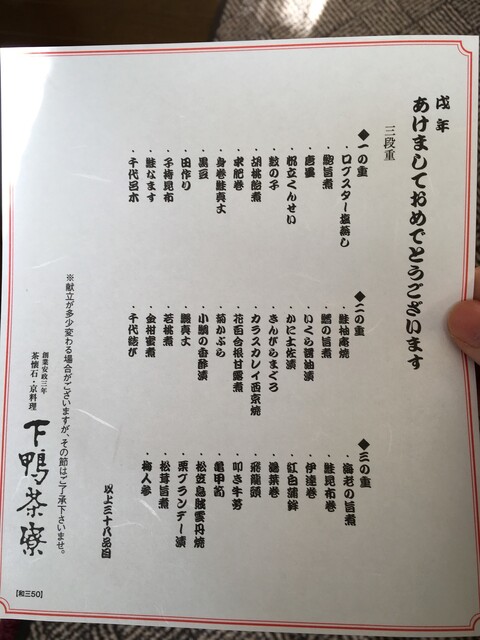 戌年
あけましておめでとうございます
三段重
◆一の重
・ロブスター塩蒸し
・鮑旨煮
・唐墨
・帆立くんせい
・数の子
・胡桃飴煮
・求肥巻
・身巻鮭真丈
・黒豆
・田作り
・子持昆布
・鮭なます
・千代呂木
◆二の重
・鮭柚庵焼
・鱈の旨煮
・いくら醤油漬
・かに土佐漬
・きんぴらまぐろ
・カラスカレイ西京焼
・花百合根甘露煮
・菊かぶら
・小鯛の香酢漬
・鶏真丈
・若桃煮
・金柑蜜煮
・千代結び
◆三の重
・海老の旨煮
・鮭昆布巻
・伊達巻
・紅白蒲鉾
・鶏葉巻
・飛龍頭
・叩き牛蒡
・亀甲筍
・松笠烏賊雲丹焼
・栗ブランデー漬
・松茸旨煮
・梅人参
以上三十八品目
※献立が多少変わる場合がございますが、その節はご了承下さいませ。
創業安政三年
茶懐石・京料理
下鴨茶寮
【和三50】